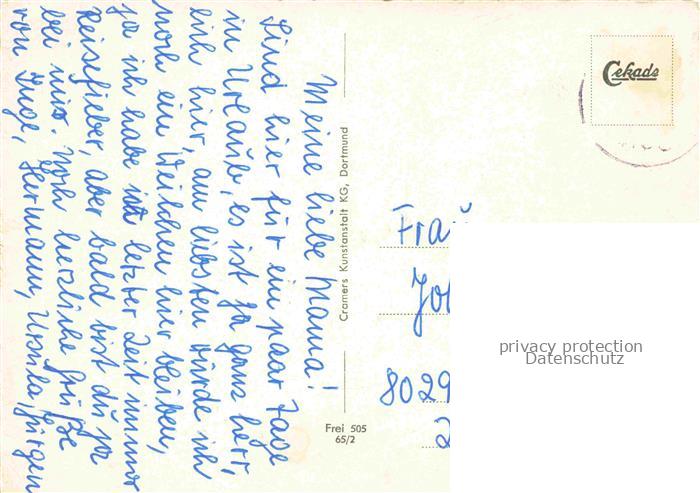 Meine liebe Mama!
Sind hier für ein paar Tage
in Urlaub, es ist ja ganz herr,
lich hier, am liebsten würde ich
noch ein Weilchen hier bleiben,
ja ich habe in letzter Zeit immer
Reisefieber, aber bald bist du ja
bei mir. Noch herzliche Grüße
von Inge, Hermann, Ursula, Jürgen
Cramers Kunstanstalt KG, Dortmund
Frei 505
65/2
Cekade
Frau
8029
privacy protection
Datenschutz